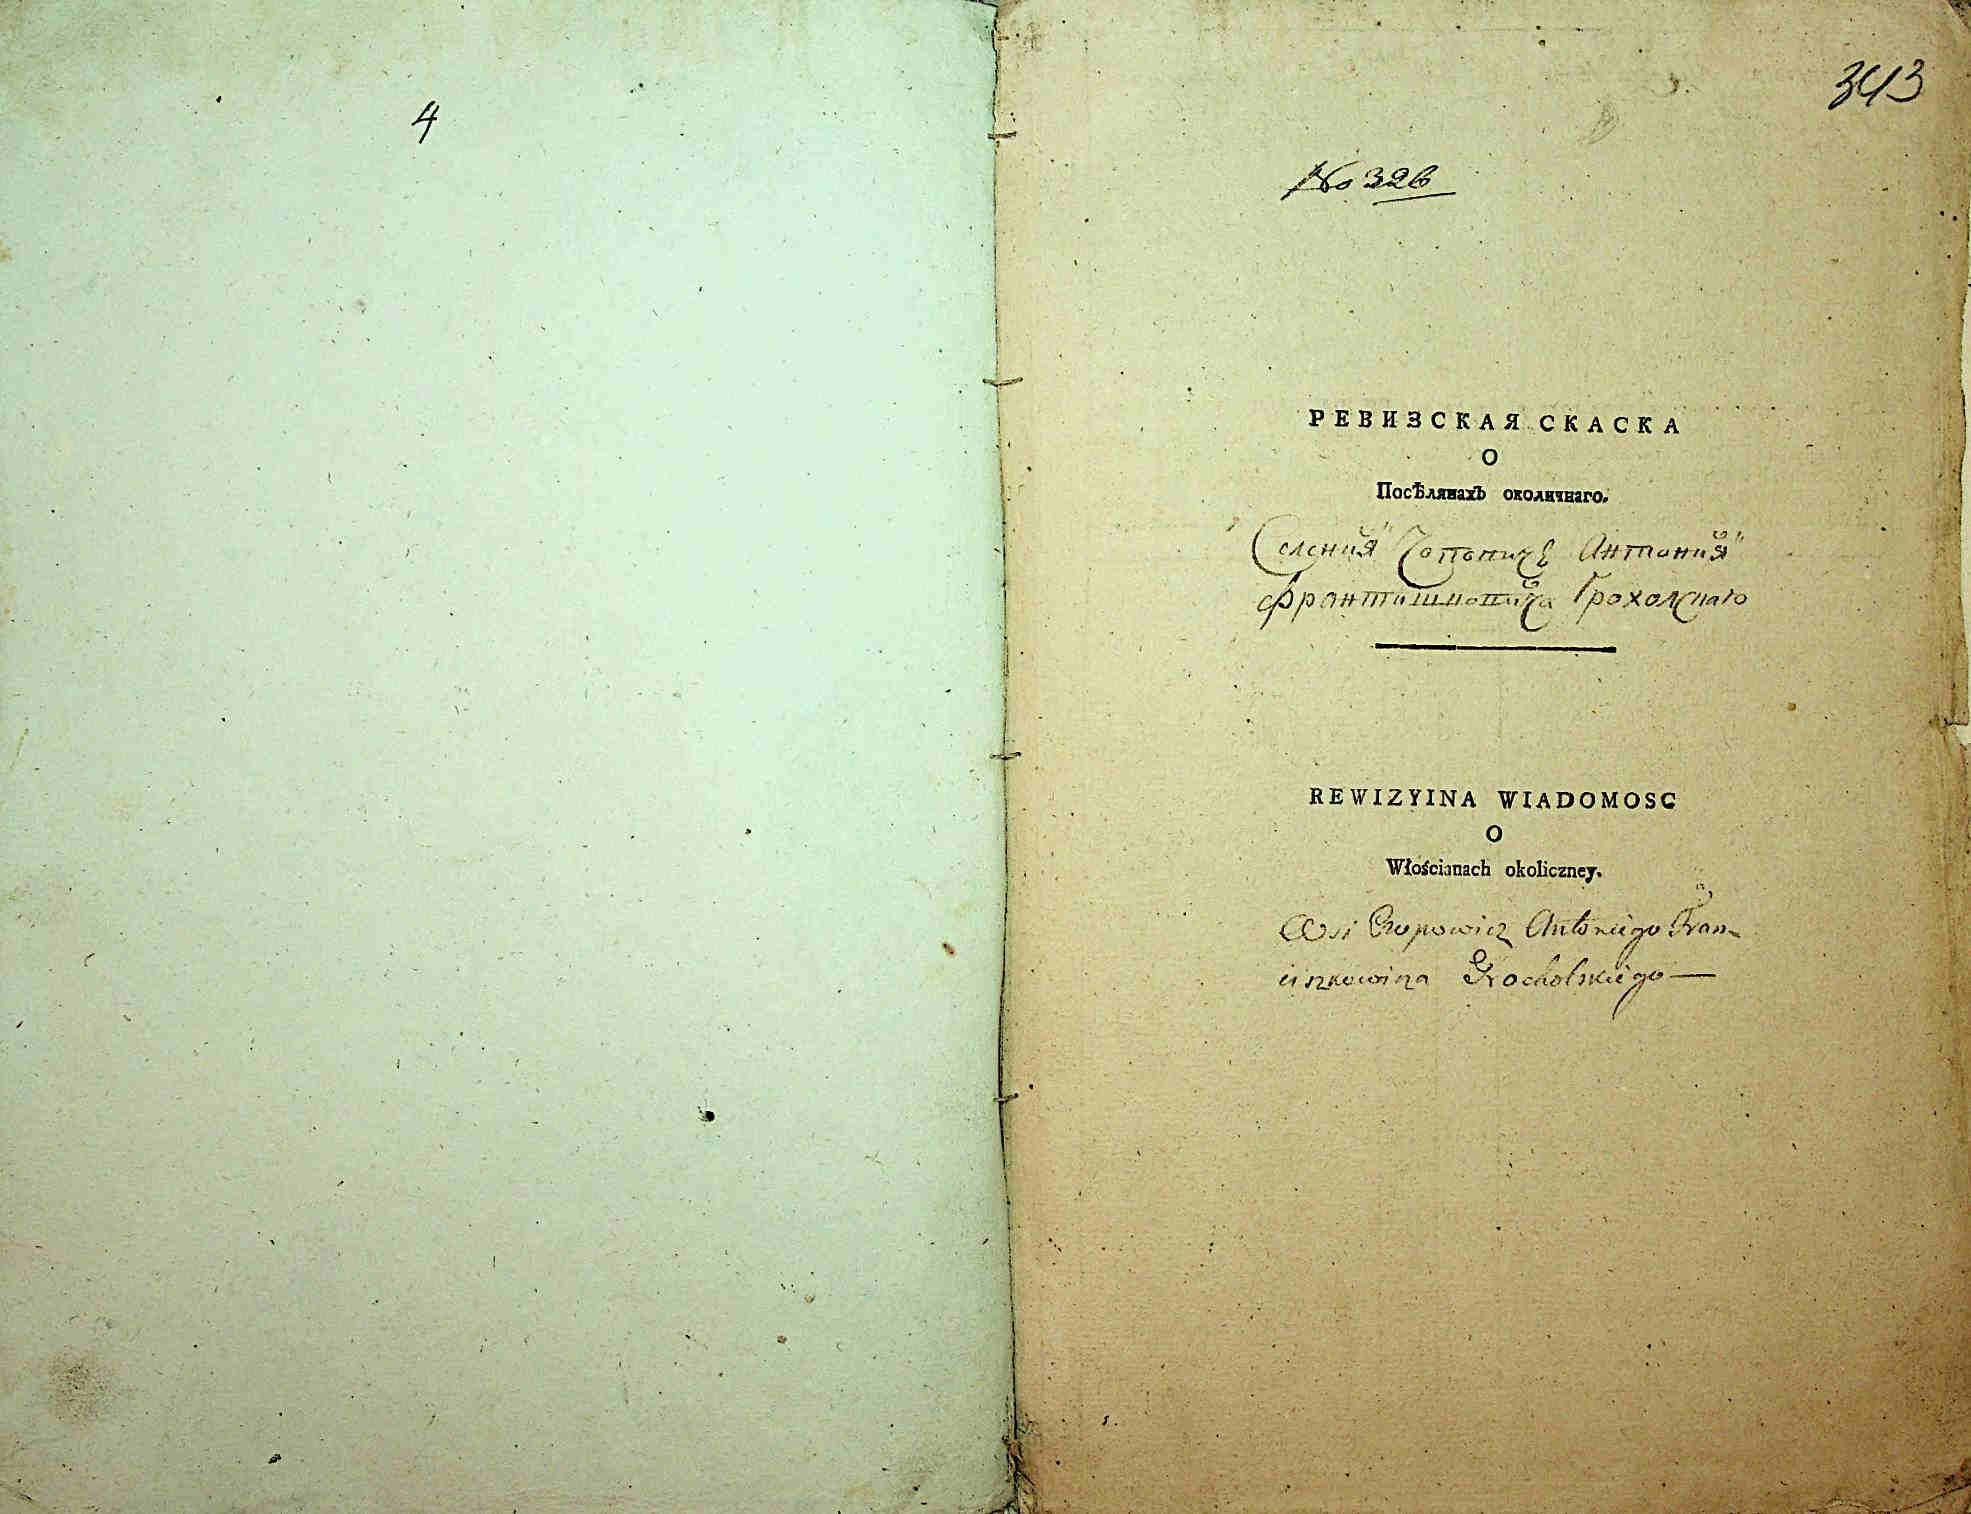 4
343
No 326
РЕВИЗСКАЯ СКАСКА
О
Посѣлянахъ околичнаго.
Селения Чоповичь Антония
Франтишковича Грохолскаго
REWIZYINA WIADOMOSC
O
Włościanach okoliczney.
Wsi Czopowicz Antoniego Fran-
ciszkowicza Grocholskiego —